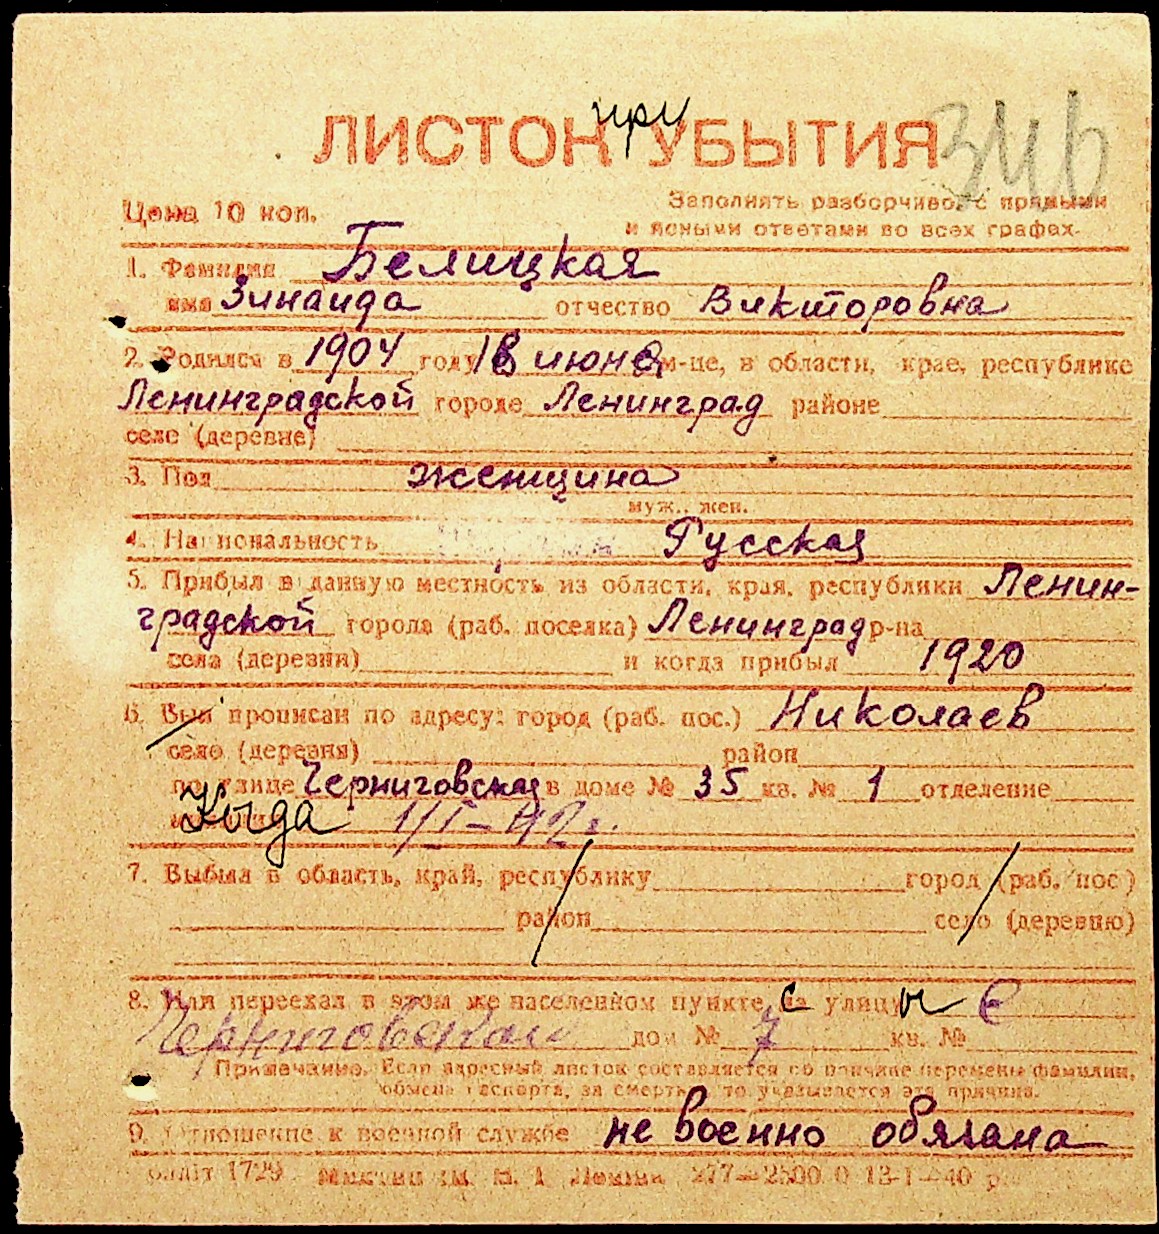 при
ЛИСТОК УБЫТИЯ 346
Цена 10 коп.
Заполнять разборчиво, с прямыми
и ясными ответами во всех графах.
1. Фамилия Белицкая
имя Зинаида отчество Викторовна
2. Родился в 1904 году 18 июня м-це, в области, крае, республике
Ленинградской городе Ленинград районе
селе (деревне)
3. Пол женщина
муж., жен.
4. Национальность Русская
5. Прибыл в данную местность из области, края, республики Ленин-
градской города (раб. поселка) Ленинград р-на
села (деревни) и когда прибыл 1920
6. Был прописан по адресу: город (раб. пос.) Николаев
село (деревня) район
по улице Черниговская в доме № 35 кв. № 1 отделение
Когда 1/I-42 г.
7. Выбыл в область, край, республику город (раб. пос)
район село (деревню)
8. Или переехал в этом же населенном пункте с улицы С
Черниговской дом № 7 кв. №
Примечание. Если адресный листок составляется по причине перемены фамилии,
обмена паспорта, за смертью, то указывается эта причина.
9. Отношение к военной службе не военно обязана
1729 277—2500 0 13-1—40 р